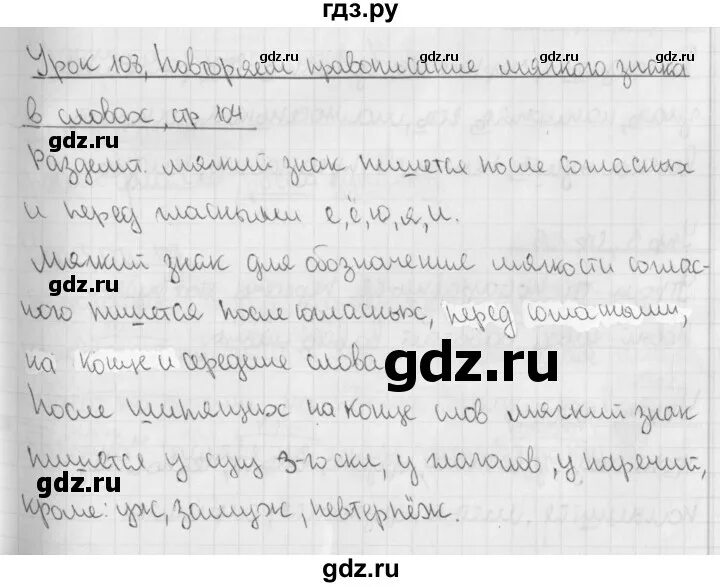 гдз.ру
Урок 108, Повторяем правописание мягкого знака
в словах, стр 104
Разделит. мягкий знак пишется после согласных
и перед гласными е, ё, ю, я, и.
Мягкий знак для обозначение мягкости соглас-
ного пишется после согласных, перед согласными,
на конце и середине слова
После шипящих на конце слов мягкий знак
пишется у сущ 3-го скл, у глаголов, у наречий,
кроме: уж, замуж, невтерпёж.
gdz.ru
gdz.ru
gdz.ru
gdz.ru
gdz.ru
gdz.ru
gdz.ru
gdz.ru
gdz.ru
gdz.ru
gdz.ru
gdz.ru